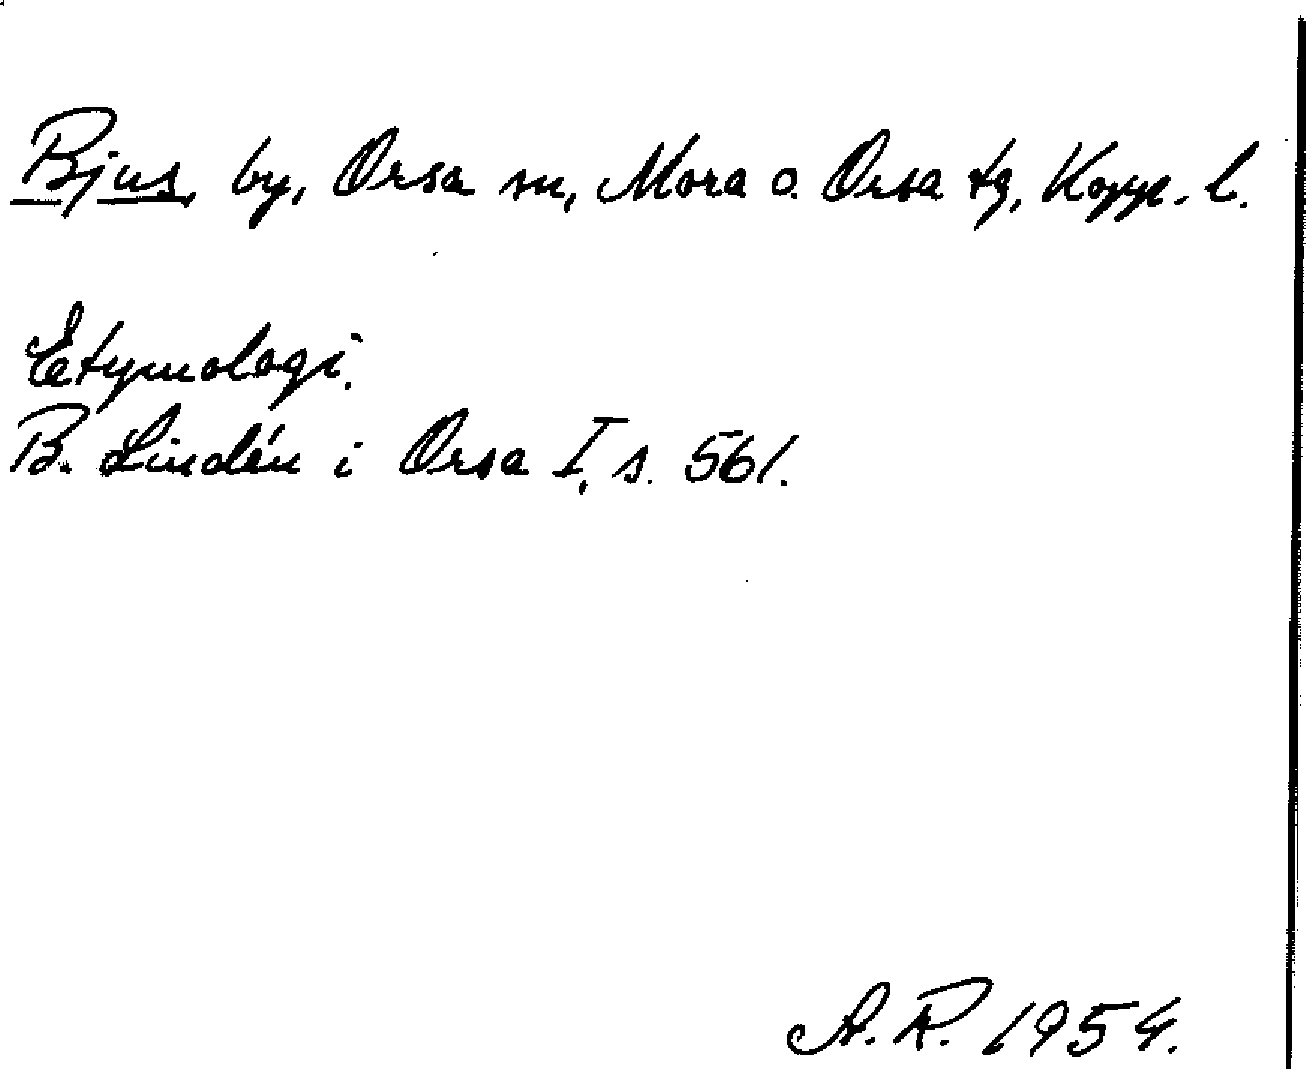 Bjus, by, Orsa sn, Mora o. Orsa tg, Kopp. l.
Etymologi.
B. Lindén i Orsa I, s. 561.
A. R. 1954.